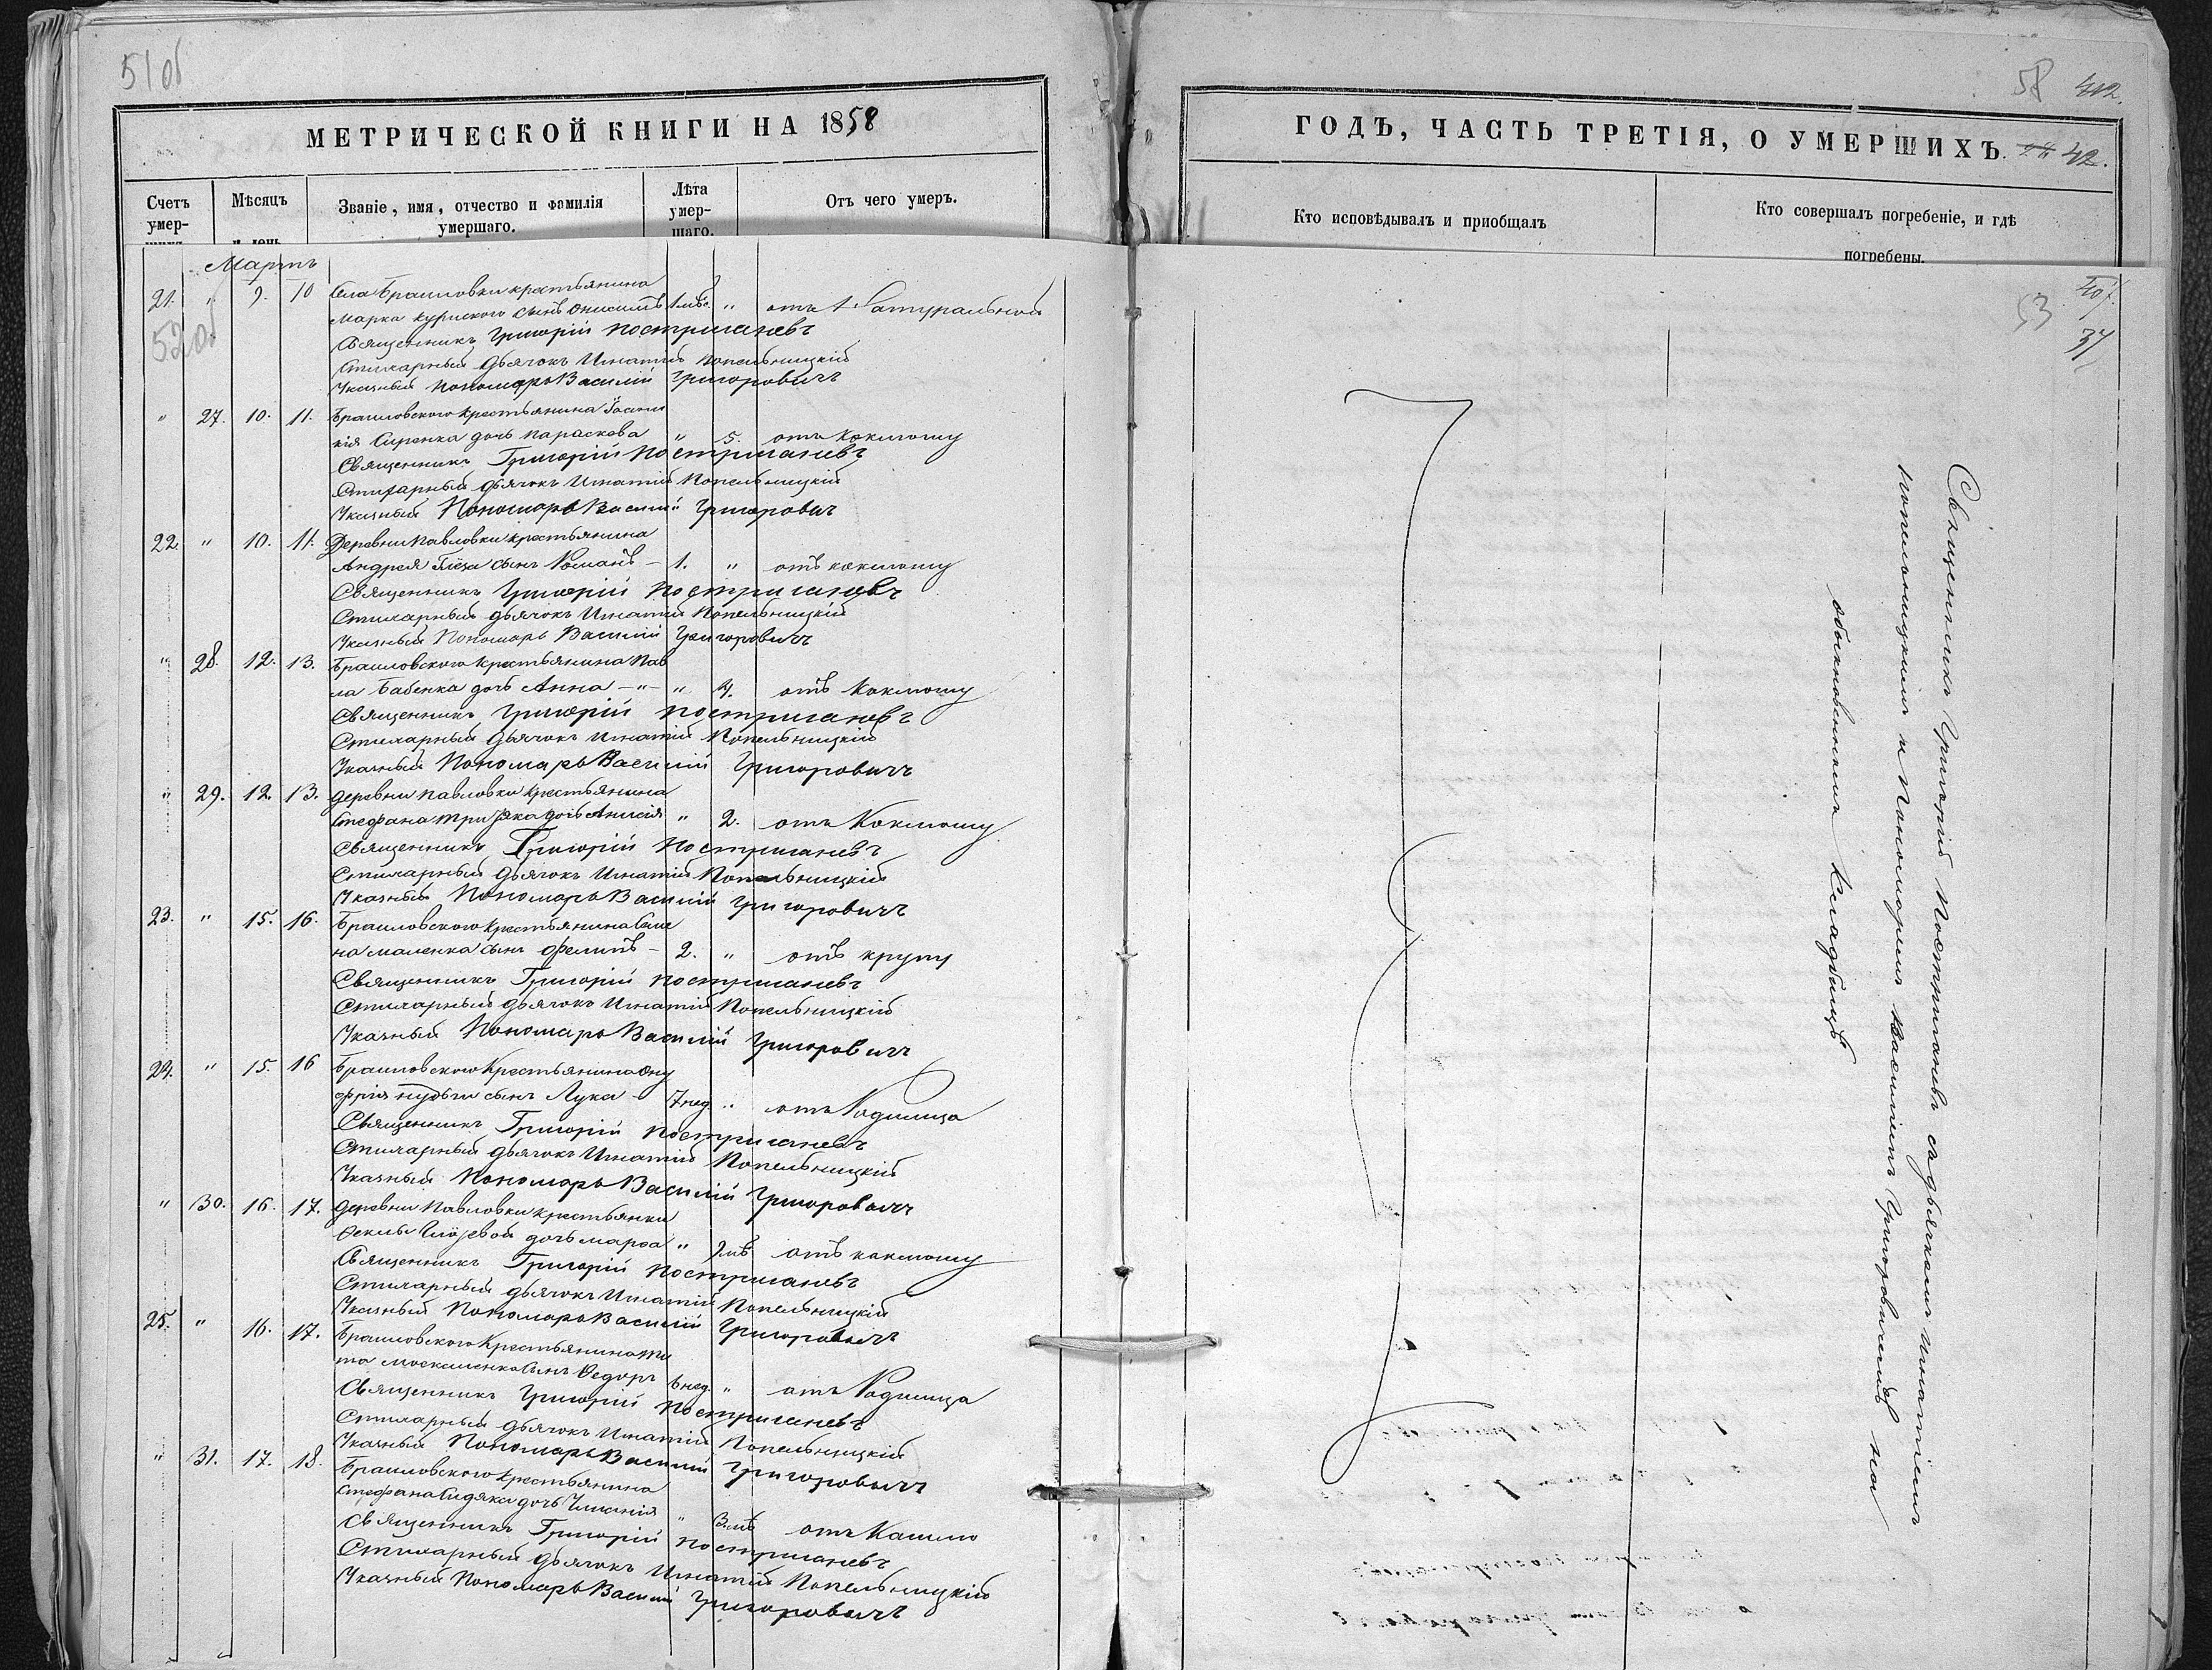 51об
МЕТРИЧЕСКОЙ КНИГИ НА 1858
Счетъ умер-
Мѣсяцъ
и день
Званіе, имя, отчество и фамилія умершаго.
Лѣта умер- шаго.
Отъ чего умеръ.
Мартъ
21. " 9. 10 Села Браиловки крестьянина
Марка Куриского сынъ Онисимъ " отъ Натуральной
52об
Священникъ Григорій Постригачевъ
Стихарный Дьячокъ Игнатій Попельницкій
Указный Пономарь Василій Григоровичъ
" 27. 10. 11. Браиловского крестьянина
дочь Параскева " 5. отъ Коклюшу
Священникъ Григорій Постригачевъ
Стихарный Дьячокъ Игнатій Попельницкій
Указный Пономарь Василій Григоровичъ
22. " 10. 11. Деревни Павловки крестьянина
Андрея сынъ Романъ – 1. " отъ коклюшу
Священникъ Григорій Постригачевъ
Стихарный Дьячокъ Игнатій Попельницкій
Указный Пономарь Василій Григоровичъ
" 28. 12. 13. Браиловского крестьянина Пав
ла Бабенка дочь Анна – " – " 4. отъ Коклюшу
Священникъ Григорій Постригачевъ
Стихарный Дьячокъ Игнатій Попельницкій
Указный Пономарь Василій Григоровичъ
" 29. 12. 13. деревни Павловки крестьянина
Стефана дочь Анисія " 2. отъ Коклюшу
Священникъ Григорій Постригачевъ
Стихарный Дьячокъ Игнатій Попельницкій
Указный Пономарь Василій Григоровичъ
23. " 15. 16. Браиловского крестьянина Симе
на Маленка сынъ Филипъ – 2. " отъ крупу
Священникъ Григорій Постригачевъ
Стихарный Дьячокъ Игнатій Попельницкій
Указный Пономарь Василій Григоровичъ
24. " 15. 16 Браиловского Крестьянина Ону
фрія Нудьги сынъ Лука – 7 нед. " отъ Родимца
Священникъ Григорій Постригачевъ
Стихарный Дьячокъ Игнатій Попельницкій
Указный Пономарь Василій Григоровичъ
" 30. 16. 17. деревни Павловки крестьянки
Феклы дочь Марфа " отъ коклюшу
Священникъ Григорій Постригачевъ
Стихарный дьячокъ Игнатій Попельницкій
Указный Пономарь Василій Григоровичъ
25. " 16. 17. Браиловского Крестьянина Ти
та Москаленка сынъ Федоръ 6 нед. " отъ Родимца
Священникъ Григорій Постригачевъ
Стихарный Дьячокъ Игнатій Попельницкій
Указный Пономарь Василій Григоровичъ
" 31. 17. 18. Браиловского крестьянина
Стефана Сидяка дочь " отъ Кашлю
Священникъ Григорій Постригачевъ
Стихарный Дьячокъ Игнатій Попельницкій
Указный Пономарь Василій Григоровичъ
58 412.
ГОДЪ, ЧАСТЬ ТРЕТІЯ, О УМЕРШИХЪ. 42.
Кто исповѣдывалъ и пріобщалъ
Кто совершалъ погребеніе, и гдѣ
погребены.
53
37
Священникъ Григорій Постригачевъ съ дьячкомъ Игнатіемъ
Попельницкимъ и Пономаремъ Василіемъ Григоровичемъ на
обыкновенномъ Кладбищѣ